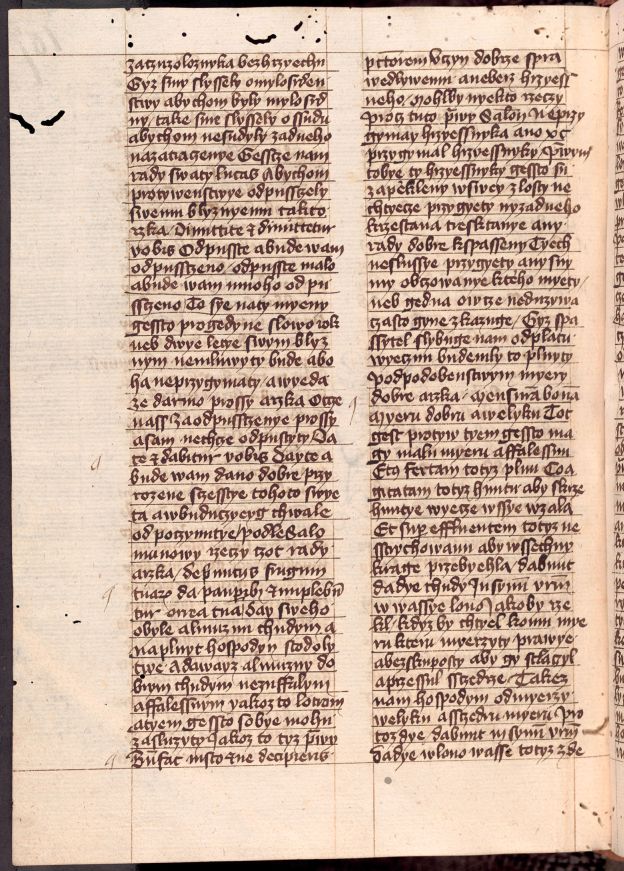 zatrzoloznyka bezhrzyechu
Gyz smy slyssely omylosrden
stwy abychom byly mylosrd
ny, take sme slyssely ossudu
abychom nesudyly zadneho
nazatracenye Gessczе nam
rady swaty lucas Abychom
protywenstwye odpussczely
swemu blyznyemu takto
rzka / Dimittite & dimittetur
vobis Odpuste abude wam
odpussczeno, odpuste malo
abude wam mnoho od pu
ssczeno To sye naty myeny
gessto pro gedyne slowo rok
neb dwye lete swym blyz
nym nemluwyty bude abo
ha neprzygymaty / awyeda
ze darmo prossy arzka Otcze
nass Zaodpussczenye prossy
asam nechcze odpustyty Da
te & dabitur vobis dayte a
bude wam dano dobre przy
rozene sczesstye tohoto swye
ta awbuduczyeg chwale
odpoczynutye / podle Salo
munowy rzeczy tzot rady
arzka / de primicys frugum
tuarum da pauperibus & implebun
tur orrea tua day sweho
obyle almuznu chudym a
naplnyt hospodyn stodoly
twe Adawayz almuzny do
brym chudym nezuffalym
affalessnym yakoz to lotrom
atyem gessto sobye mohu
zasluzyty Jakoz to tyz prwy
Benefac iusto & ne decipieris
pctorem Uczyn dobrze spra
wedlywemu aneberz hrzyess
neho / Mohlby nyekto rzeczy
Procz tuto prwy Salon Neprzy
gymay hrzyessnyka ano xpc
przygymal hrzyessnyky Prwy
tobye ty hrzyessnyky gessto su
zapekleny wswey zlosty ne
chtyecze przygyety nyzadneho
krzestana trestktanye any
rady dobre kspasseny Tyech
neslussye przygyety any sny
my obczowanye kteho myety
neb gedna owcze nedużywa
czasto gyne zkazuge / Gyz spa
ssytel slybuge nam odplatu
wyeczni budemly to plnyty
Podpodobenstwym myery
dobre arzka / Mensuram bonam
Myeru dobru awelyku Tot
gest protyw tyem gessto ma
gy malu myeru affalessnu
Et confertam totyz plnu Coa
gitatam totyz hnutu aby skrze
hnutye wyecze wssye wzala
Et supereffluentem totyz ne
sstrychowanu aby wssechny
kragе przebyehla / dabunt
dadye chudy In synum vestrum
w wasse lono Jakoby rze
kl kdyz by chtyel komu mye
ru kteru mverzyty prawye
abezskuposty aby gy stlaczyl
aprzessul sczedrze Takez
nam hospodyn odmyerzy
welyku assczedru myeru Pro
toz dye dabunt in synum vestrum
dadye wlono wasse totyz zde